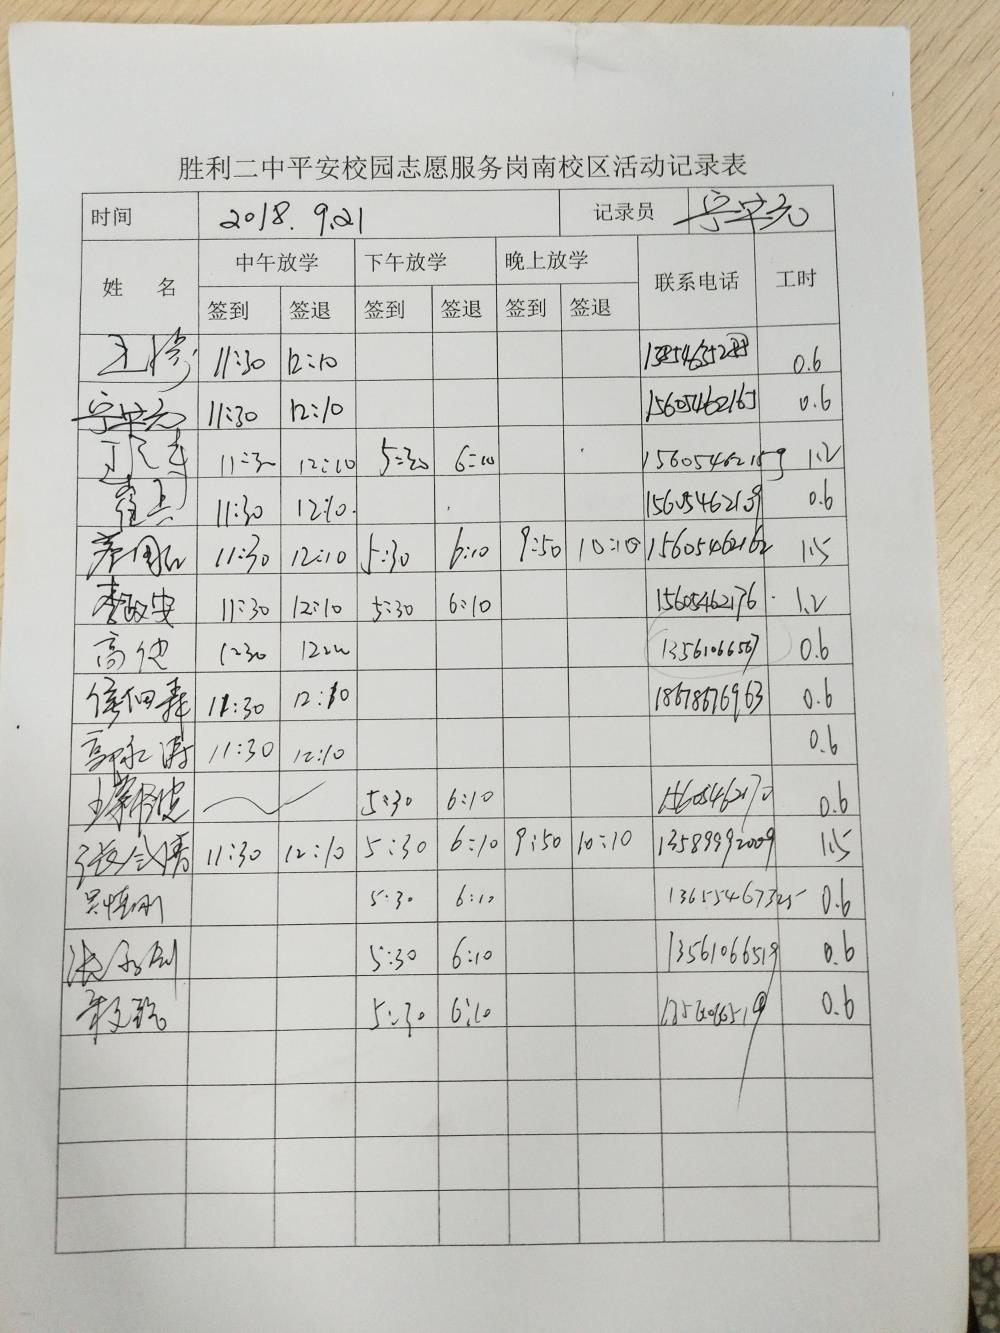 胜利二中平安校园志愿服务岗南校区活动记录表
时间 2018.9.21 记录员 宁安元
姓 名 中午放学 下午放学 晚上放学 联系电话 工时
签到 签退 签到 签退 签到 签退
11:30 12:10 0.6
宁安元 11:30 12:10 15605462165 0.6
11:30 12:10 5:30 6:10 15605462159 1.2
11:30 12:10. 15605462109 0.6
11:30 12:10 5:30 6:10 9:50 10:10 15605462162 1.5
李政安 11:30 12:10 5:30 6:10 15605462176 1.2
高健 0.6
11:30 12:10 18678676963 0.6
高永涛 11:30 12:10 0.6
5:30 6:10 15605462170 0.6
11:30 12:10 5:30 6:10 9:50 10:10 13589992009 1.5
5:30 6:10 13655467325 0.6
5:30 6:10 13561066519 0.6
5:30 6:10 0.6